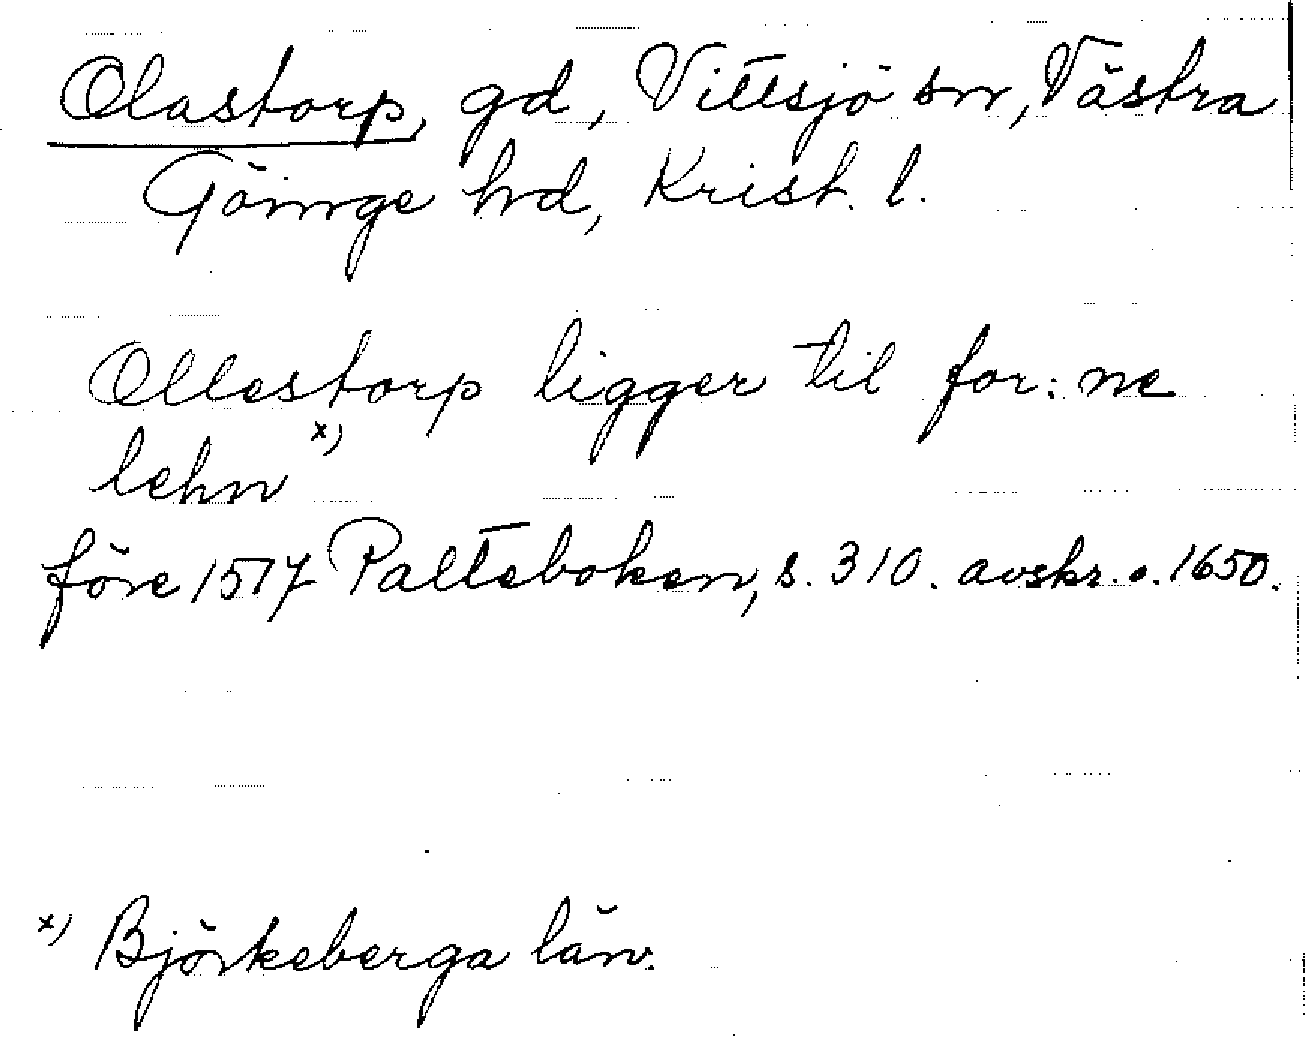 Olastorp, gd, Vittsjö sn, Västra
Göinge hd, Krist. l.
Ollestorp ligger til for: ne
lehn x)
före 1517 Palteboken, s. 310. avskr. o. 1650.
x) Björkeberga län.